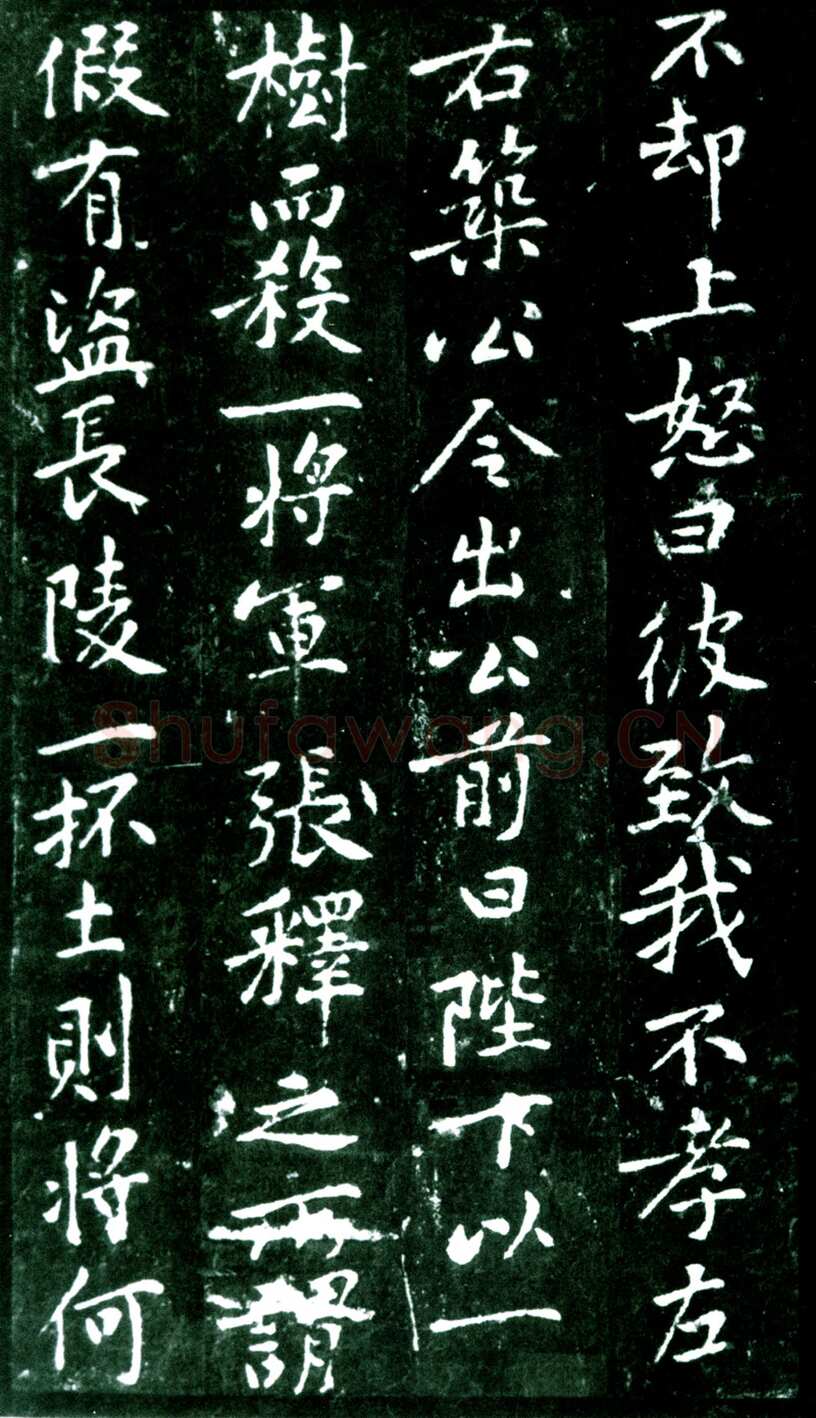 不却上怒曰彼致我不孝左
右築公令出公前曰陛下以一
樹而殺一將軍張釋之謂
假有盜長陵一抔土則將何
Shufawang.CN